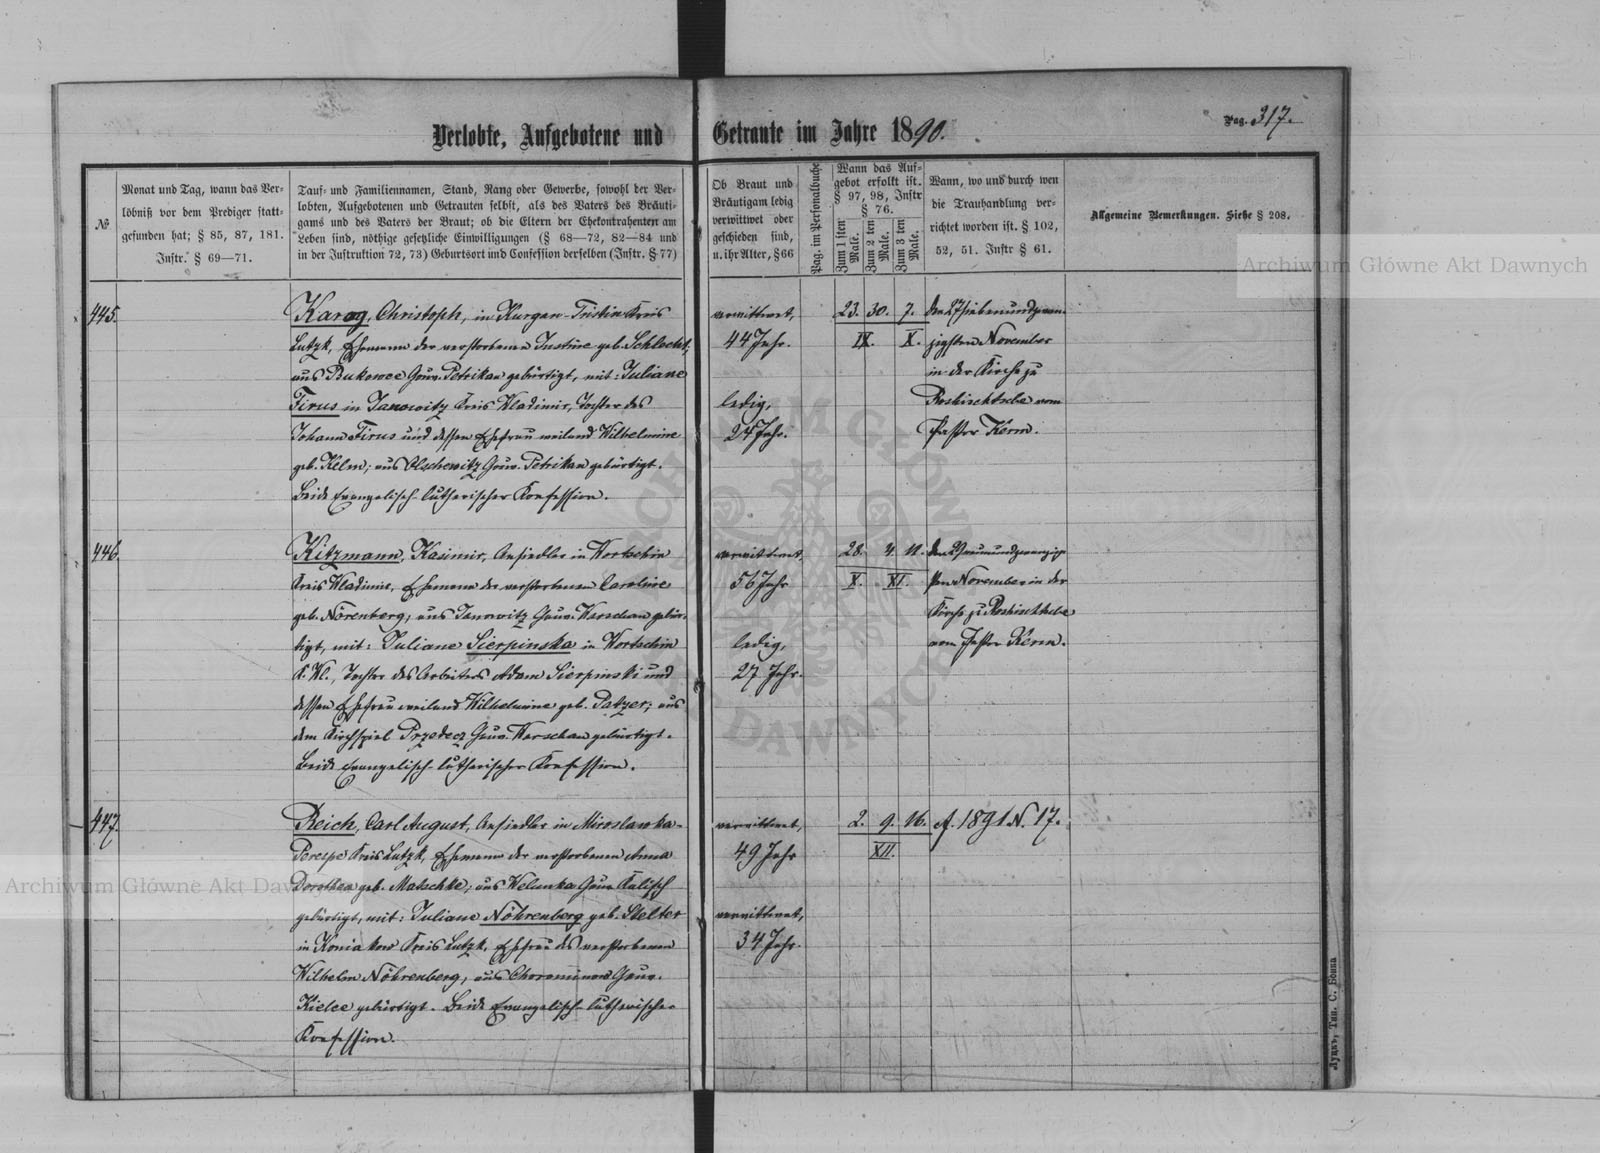 Verlobte, Aufgebotene und Getraute im Jahre 1890.
Pag. 317.
№
Monat und Tag, wann das Ver-
löbniß vor dem Prediger statt-
gefunden hat; § 85, 87, 181.
Instr. § 69—71.
Tauf- und Familiennamen, Stand, Rang oder Gewerbe, sowohl der Ver-
lobten, Aufgebotenen und Getrauten selbst, als des Vaters des Bräuti-
gams und des Vaters der Braut; ob die Eltern der Ehekontrahenten am
Leben sind, nöthige gesetzliche Einwilligungen (§ 68—72, 82—84 und
in der Instruktion 72, 73) Geburtsort und Confession derselben (Instr. § 77)
Ob Braut und
Bräutigam ledig
verwittwet oder
geschieden sind,
u. ihr Alter, § 66
Pag. im Personalbuche
Wann das Auf-
gebot erfolkt ist.
§ 97, 98, Instr
§ 76.
Zum 1 sten
Male.
Zum 2 ten
Male.
Zum 3 ten
Male.
Wann, wo und durch wen
die Trauhandlung ver-
richtet worden ist. § 102,
52, 51. Instr § 61.
Allgemeine Bemerkungen. Siehe § 208.
445.
Karog, Christoph, in Kurgan-Tristin Kreis
Lutzk, Ehemann der verstorbenen Justine geb. Schlecht;
aus Bukowce Gouv. Petrikau gebürtigt, mit: Juliane
Firus in Janowitz Kreis Wladimir, Tochter des
Johann Firus und dessen Ehefrau weiland Wilhelmine
geb. Kelm; aus Olschewitz Gouv. Petrikau gebürtigt.
Beide Evangelisch-lutherischer Konfession.
verwittwet,
44 Jahr.
ledig,
24 Jahr.
23. 30. 7.
IX. X.
den 27 siebenundzwan-
zigsten November
in der Kirche zu
Roshischtsche vom
Pastor Kerm.
446.
Kitzmann, Kasimir, Ansiedler in Wortschin
Kreis Wladimir, Ehemann der verstorbenen Caroline
geb. Nörenberg; aus Janowitz Gouv. Warschau gebür-
tigt, mit: Juliane Sierpinska in Wortschin
K. Wl., Tochter des Arbeiters Adam Sierpinski und
dessen Ehefrau weiland Wilhelmine geb. Patzer; aus
dem Kirchspiel Przedecz Gouv. Warschau gebürtigt.
Beide Evangelisch-lutherischer Konfession.
verwittwet,
56 Jahr
ledig,
27 Jahr.
28. 4. 11.
X. XI.
den 29 neunundzwanzig-
sten November in der
Kirche zu Roshischtsche
vom Pastor Kerm.
447.
Reich, Carl August, Ansiedler in Miroslawka-
Perespe Kreis Lutzk, Ehemann der verstorbenen Anna
Dorothea geb. Matschke; aus Welunka Gouv. Kalisch
gebürtigt, mit: Juliane Nöhrenberg geb. Stelter
in Koniakow Kreis Lutzk, Ehefrau des verstorbenen
Wilhelm Nöhrenberg, aus Gouv.
Kielce gebürtigt. Beide Evangelisch-lutherischer
Konfession.
verwittwet,
49 Jahr
verwittwet,
34 Jahr.
2. 9. 16.
XII.
A. 1891 N. 17.
Луцкъ, Тип. С. Бонка
Archiwum Główne Akt Dawnych
Archiwum Główne Akt Dawnych